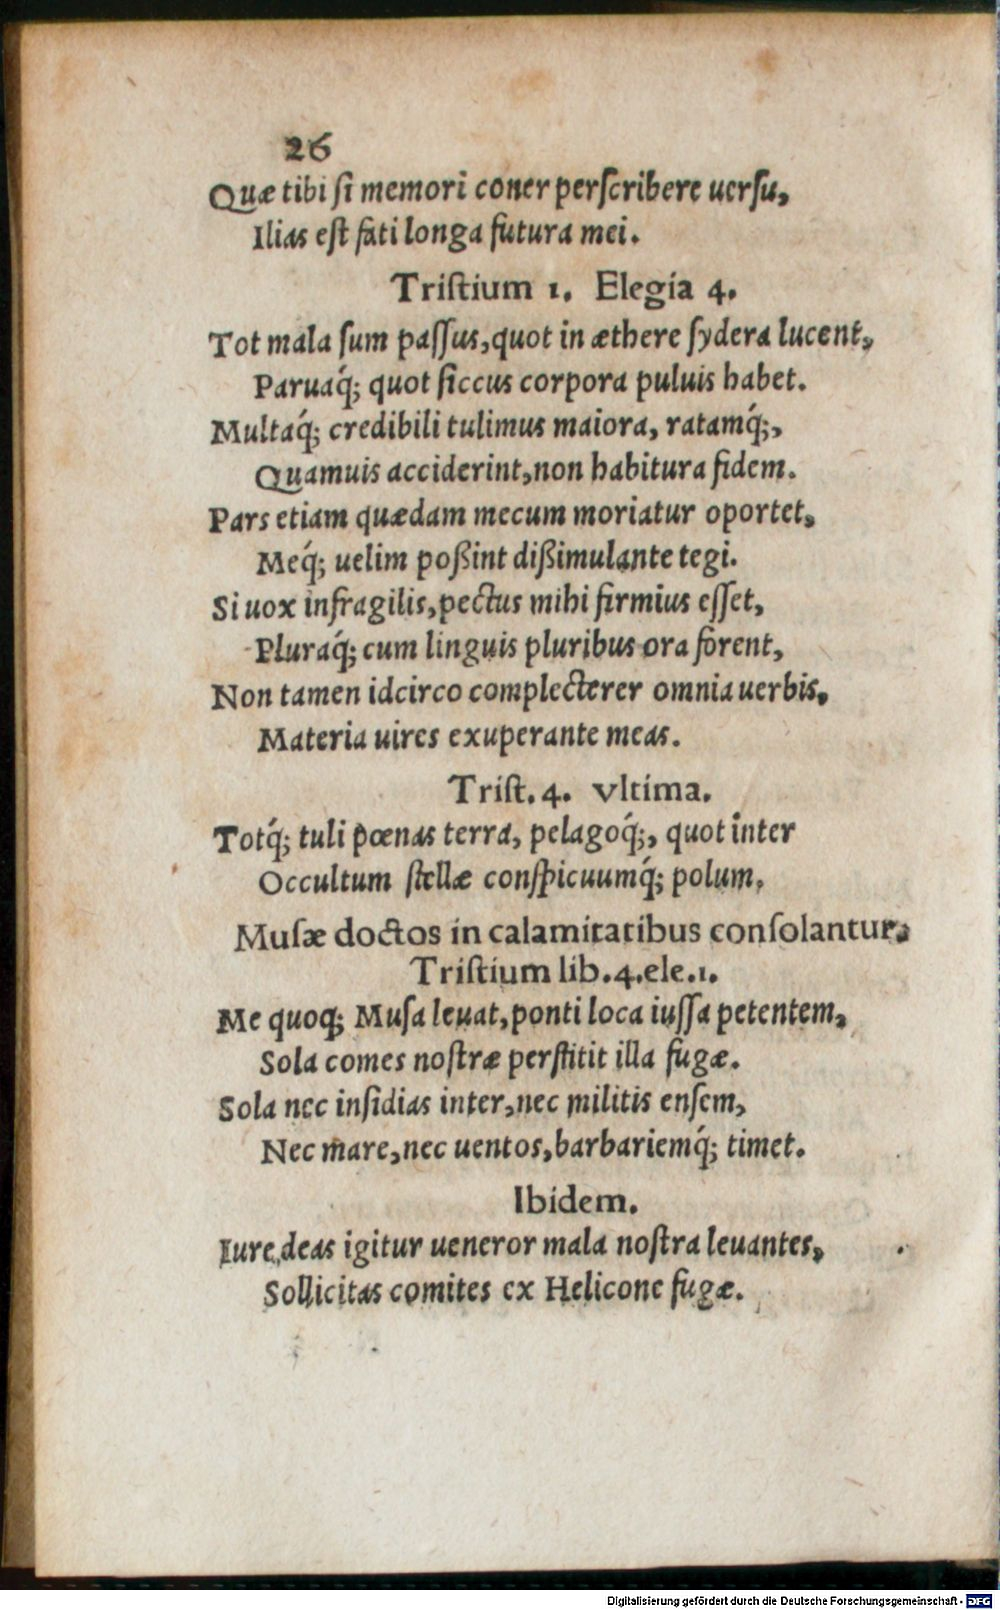 26
Quæ tibi ſi memori coner perſcribere uerſu,
Ilias eſt fati longa futura mei.
Triſtium 1. Elegia 4.
Tot mala ſum paſſus, quot in æthere ſydera lucent,
Paruaq́; quot ſiccus corpora puluis habet.
Multaq́; credibili tulimus maiora, ratamq́;,
Quamuis acciderint, non habitura fidem.
Pars etiam quædam mecum moriatur oportet,
Meq́; uelim poßint dißimulante tegi.
Si uox infragilis, pectus mihi firmius eſſet,
Pluraq́; cum linguis pluribus ora forent,
Non tamen idcirco complecterer omnia uerbis,
Materia uires exuperante meas.
Triſt. 4. vltima.
Totq́; tuli pœnas terra, pelagoq́;, quot inter
Occultum ſtellæ conſpicuumq́; polum,
Muſæ doctos in calamitatibus conſolantur.
Triſtium lib. 4. ele. 1.
Me quoq; Muſa leuat, ponti loca iuſſa petentem,
Sola comes noſtræ perſtitit illa fugæ.
Sola nec inſidias inter, nec militis enſem,
Nec mare, nec uentos, barbariemq́; timet.
Ibidem.
Iure deas igitur ueneror mala noſtra leuantes,
Sollicitas comites ex Helicone fugæ.
Digitalisierung gefördert durch die Deutsche Forschungsgemeinschaft - DFG